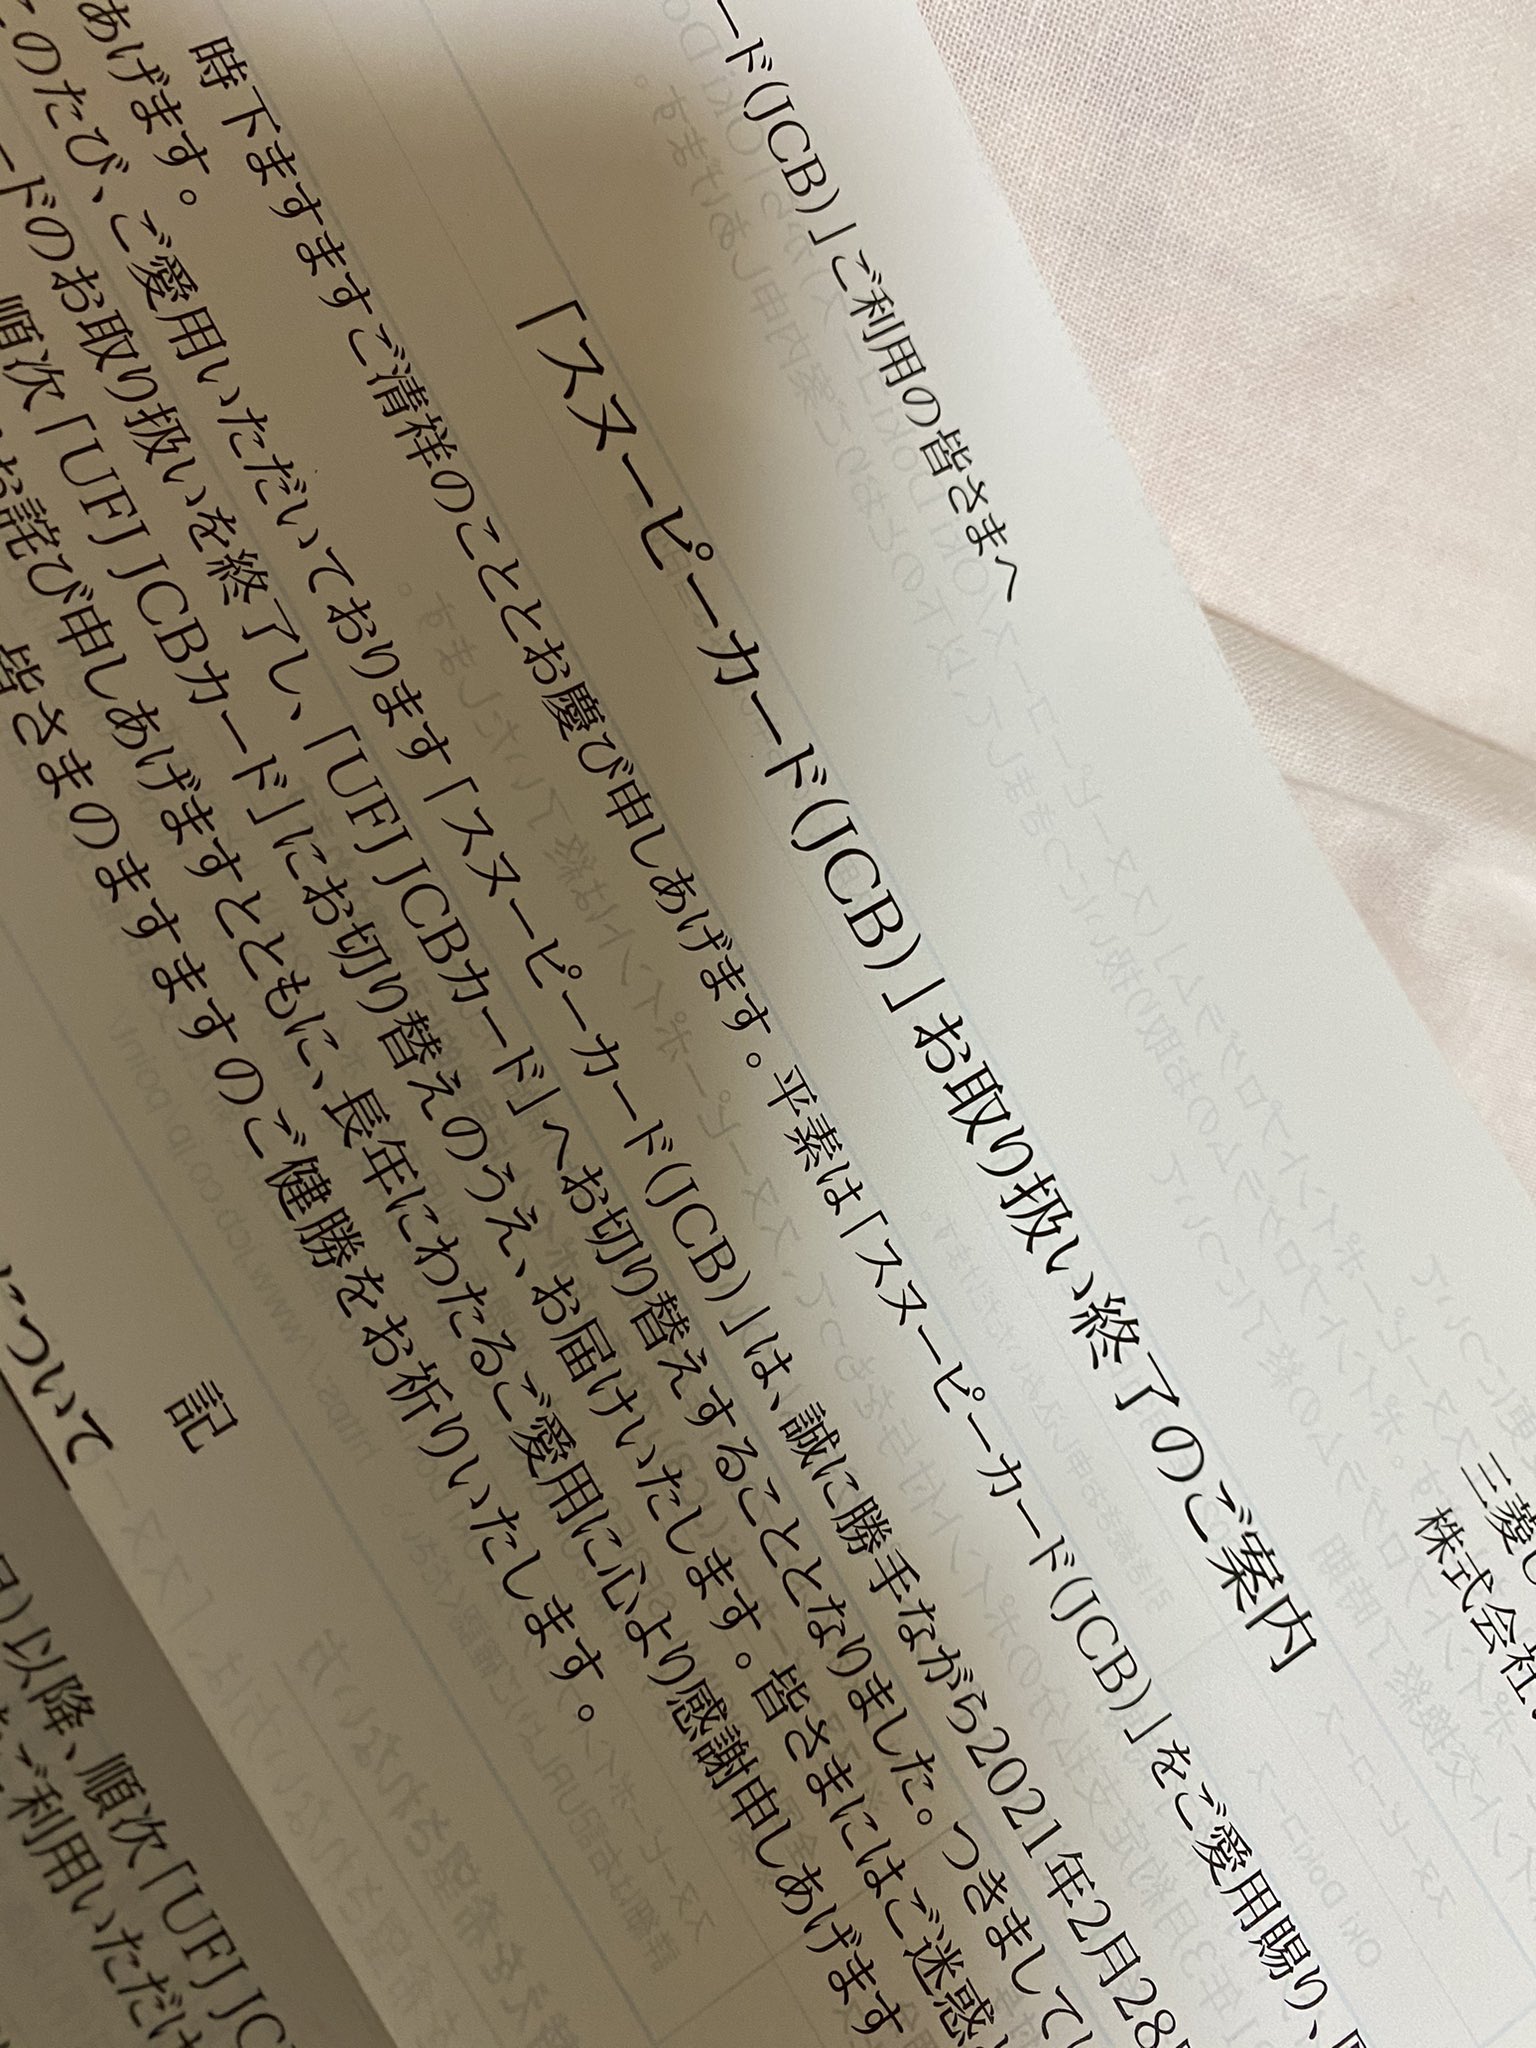 ード(JCB)」ご利用の皆さまへ
三菱
株式会社
「スヌーピーカード(JCB)」お取り扱い終了のご案内
時下ますますご清祥のこととお慶び申しあげます。平素は「スヌーピーカード(JCB)」をご愛用賜り、
あげます。
このたび、ご愛用いただいております「スヌーピーカード(JCB)」は、誠に勝手ながら2021年2月28
ードのお取り扱いを終了し、「UFJ JCBカード」へお切り替えすることとなりました。つきまして
順次「UFJ JCBカード」にお切り替えのうえ、お届けいたします。皆さまにはご迷惑
お詫び申しあげますとともに、長年にわたるご愛用に心より感謝申しあげます
皆さまのますますのご健勝をお祈りいたします。
記
について
以降、順次「UFJ JC
ご利用いただけ